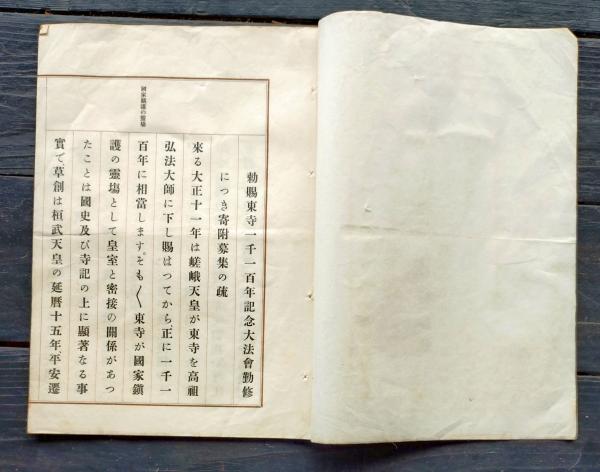 國家鎭護の靈塲
勅賜東寺一千一百年記念大法會勤修
につき寄附募集の疏
來る大正十一年は嵯峨天皇が東寺を高祖
弘法大師に下し賜はつてから、正に一千一
百年に相當します。そも〱東寺が國家鎭
護の靈塲として皇室と密接の關係があつ
たことは國史及び寺記の上に顯著なる事
實で、草創は桓武天皇の延曆十五年、平安遷